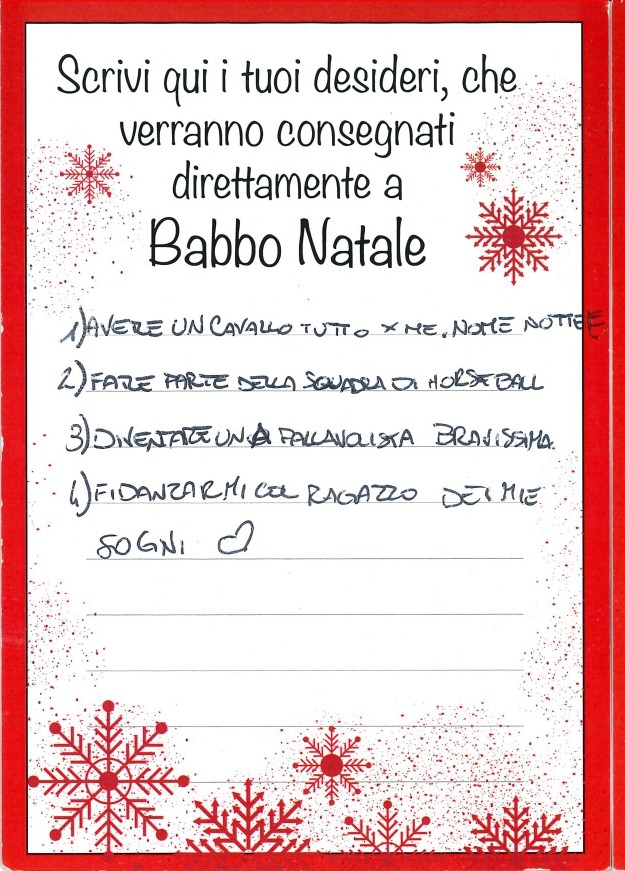 Scrivi qui i tuoi desideri, che
verranno consegnati
direttamente a
Babbo Natale
1) AVERE UN CAVALLO TUTTO X ME. NOME NOTTE
2) FARE PARTE DELLA SQUADRA DI HORSEBALL
3) DIVENTARE UNA PALLAVOLISTA BRAVISSIMA.
4) FIDANZARMI COL RAGAZZO DEI MIE
SOGNI ♡